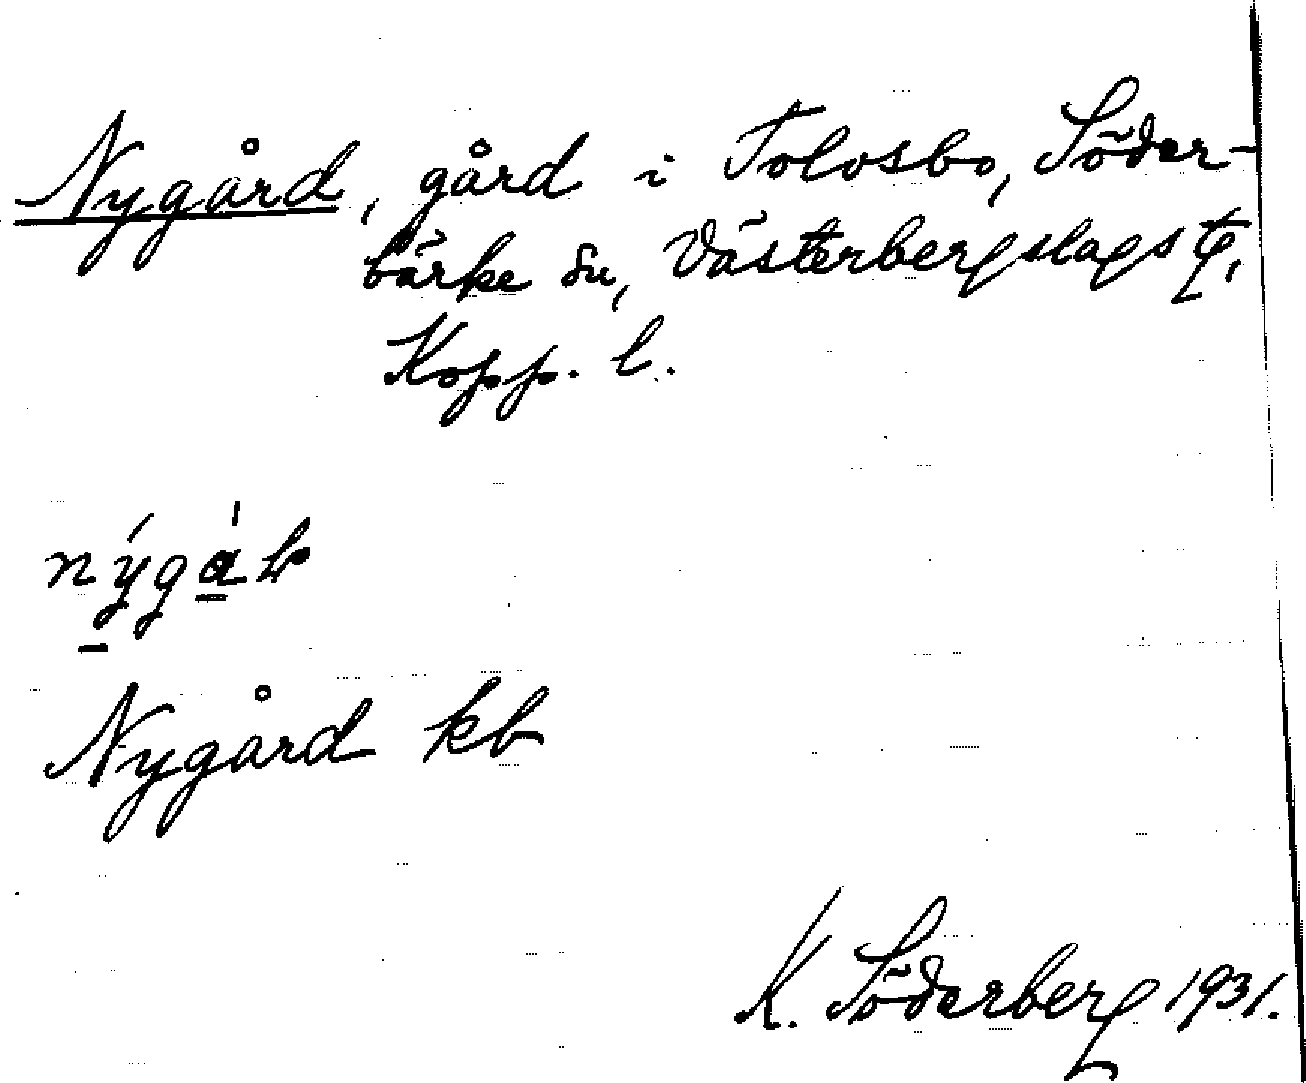 Nygård, gård i Tolvsbo, Söder-
bärke sn, Västerbergslags tg,
Kopp. l.
Nygård kb
K. Söderberg 1931.